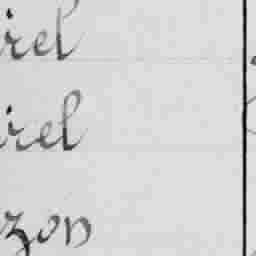 irel
irel
zon